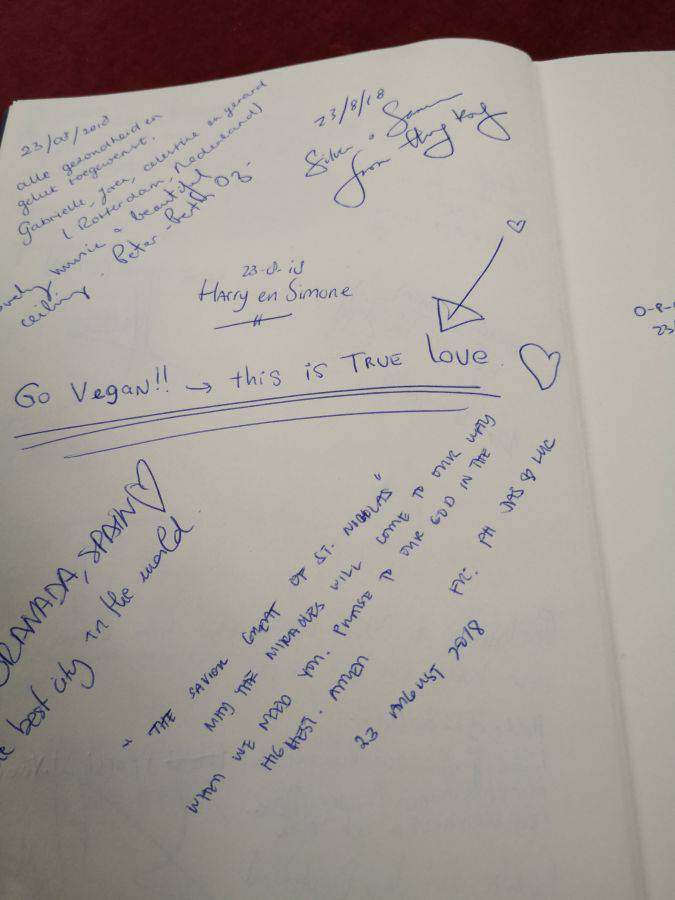 23/08/2018
alle gezondheid en
geluk toegewenst.
Gabrielle, Joen, celestine en gerard
( Rotterdam, Nederland)
music & beautiful
ceiling. Peter - Perth OZ.
23/8/18
Silvia &
from Hong Kong
23-8-18
Harry en Simone
Go Vegan!! → this is TRUE love
GRANADA, SPAIN
best city in the world
" THE SAVIOR GREAT OF ST. NICHOLAS"
MAY THE MIRACLES WILL COME TO OUR WAY
WHEN WE NEED YOU. PRAISE TO OUR GOD IN THE
HIGHEST. AMEN
FR: PH
23 AUGUST 2018